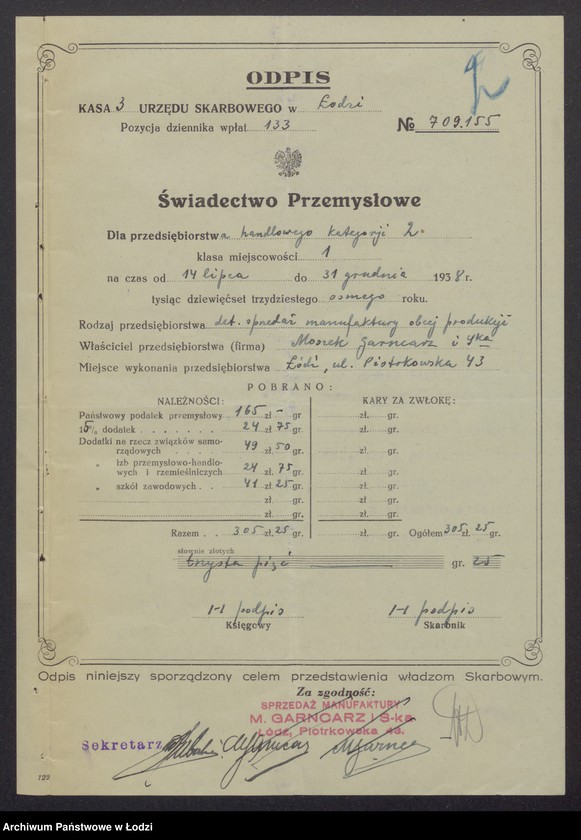 ODPIS
KASA 3 URZĘDU SKARBOWEGO w Łodzi
Pozycja dziennika wpłat 133
№ 709.155
Świadectwo Przemysłowe
Dla przedsiębiorstwa handlowego kategorji 2.
klasa miejscowości 1
na czas od 14 lipca do 31 grudnia 1938 r.
tysiąc dziewięćset trzydziestego osmego roku.
Rodzaj przedsiębiorstwa det. sprzedaż manufaktury obcej produkcji
Właściciel przedsiębiorstwa (firma) Moszek Garncarz i S-ka
Miejsce wykonania przedsiębiorstwa Łódź, ul. Piotrkowska 43
POBRANO:
NALEŻNOŚCI:
Państwowy podatek przemysłowy 165 zł - gr
15% dodatek 24 zł 75 gr.
Dodatki na rzecz związków samo-
rządowych 49 zł. 50 gr.
„ izb przemysłowo-handlo-
wych i rzemieślniczych 24 zł. 75 gr.
„ szkół zawodowych 41 zł 25 gr.
zł. gr.
zł. gr.
Razem 305 zł. 25 gr.
KARY ZA ZWŁOKĘ:
zł. gr.
zł. gr.
zł. gr.
zł. gr.
zł. gr.
zł. gr.
zł. gr.
zł. gr. Ogółem 305 zł. 25 gr.
słownie złotych
trzysta pięć gr. 25
/-/ podpis
Księgowy
/-/ podpis
Skarbnik
Odpis niniejszy sporządzony celem przedstawienia władzom Skarbowym.
Za zgodność:
SPRZEDAŻ MANUFAKTURY
M. GARNCARZ i S-ka
Łódź, Piotrkowska 43.
Sekretarz
122
Archiwum Państwowe w Łodzi